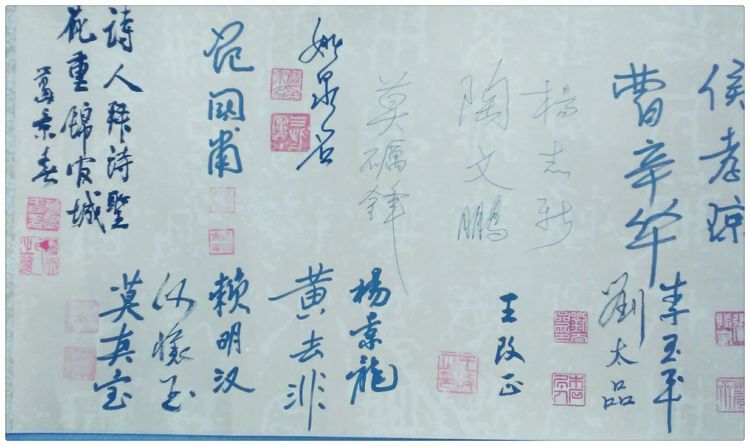 侯孝琼
曹辛华
杨志新
陶文鹏
莫砺锋
姚泉名
范国甫
詩人拜詩聖
花重锦官城
葛景春
李玉平
劉太品
王改正
杨景龍
黄去非
赖明汉
莫真宝